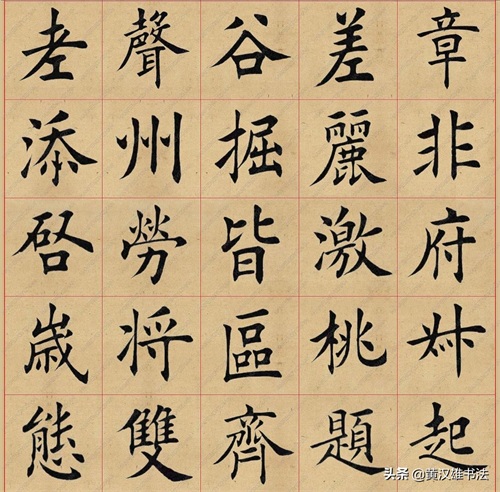 聲谷差章
添州掘麗非
勞皆激府
歲将區桃
態雙齊題起
头条 @黄汉雄书法